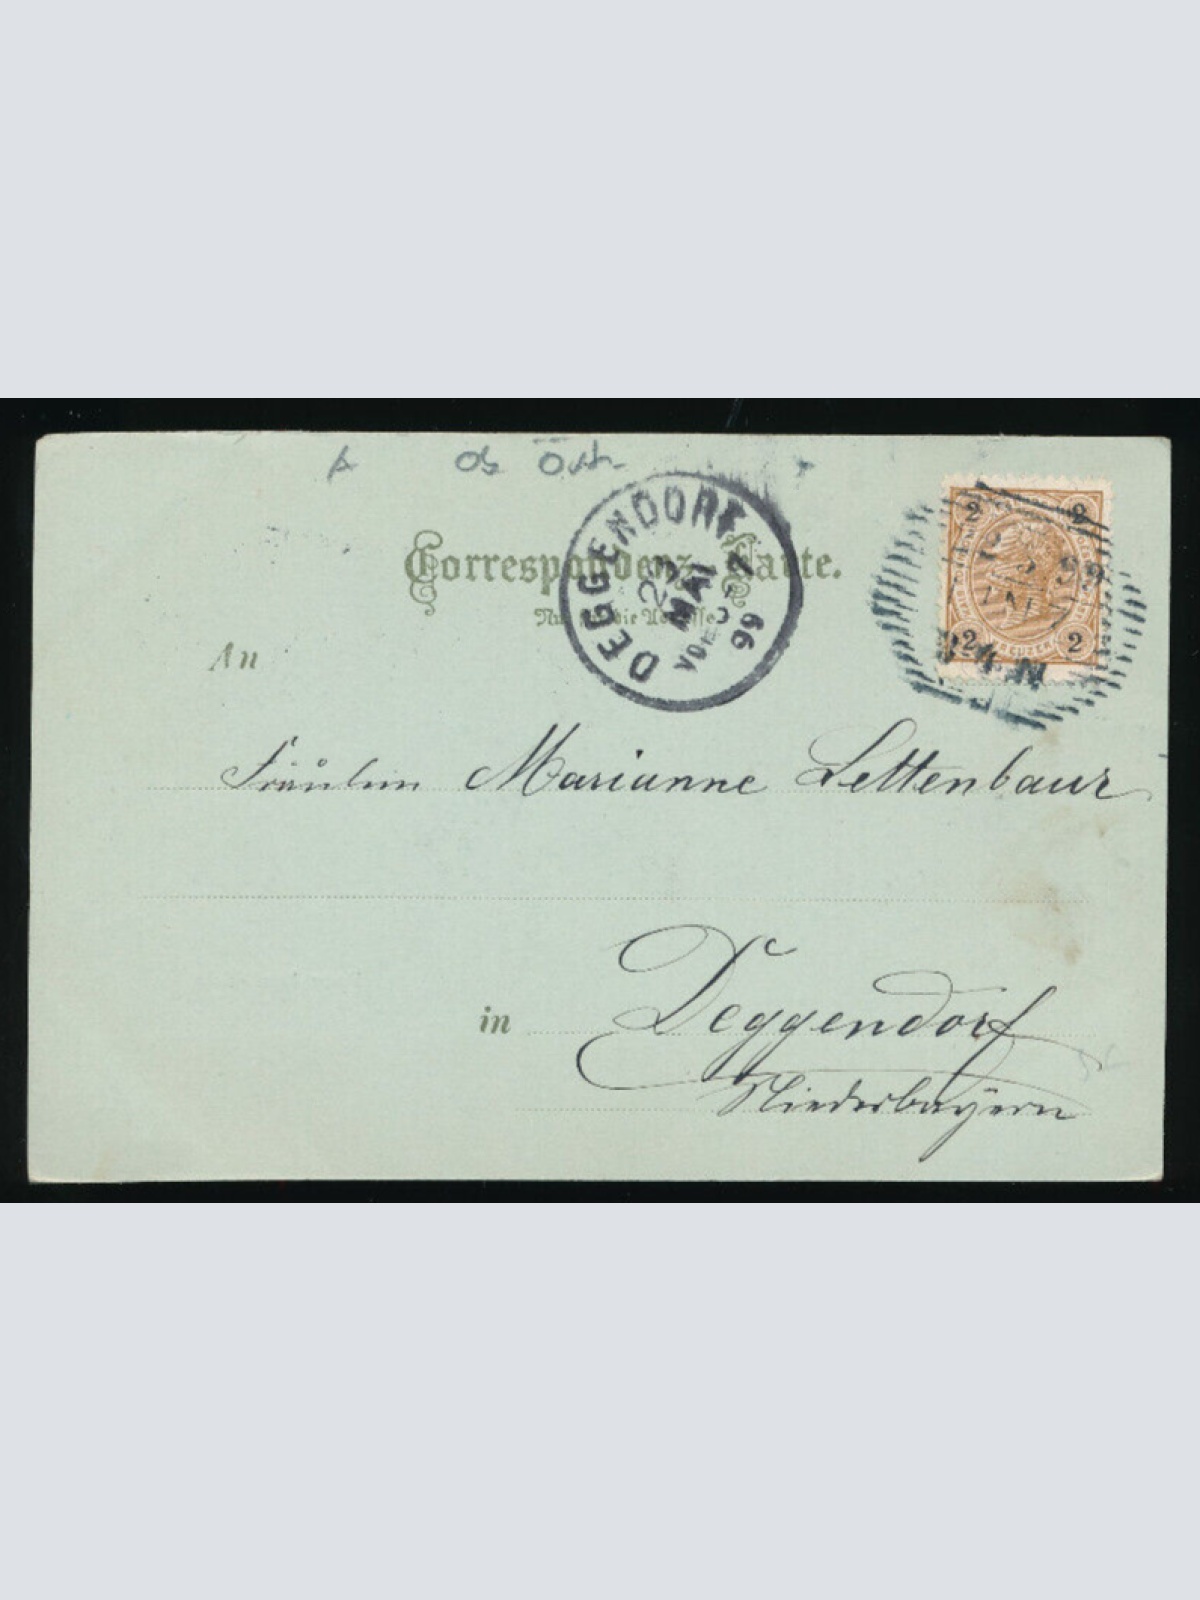 Correspondenz-Karte.
Nur für die Adresse
An
Fräulein Marianne Lettenbaur
in Deggendorf
Niederbayern
DEGGENDORF
23
MAI
99
2 2
2 KREUZER 2
99